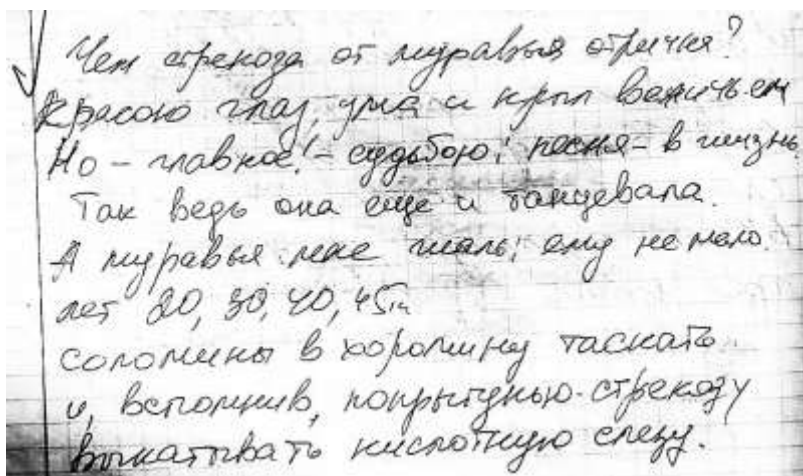 Чем стрекоза от муравья отлична?
Красою глаз, ума и крыл величьем
Но – главное! – судьбою: песня – в жизнь
Так ведь она еще и танцевала.
А муравья мне жаль: ему не мало
лет 20, 30, 40, 45
соломины в хоромину таскать
и, вспомнив, попрыгунью-стрекозу
выкатывать кислотную слезу.